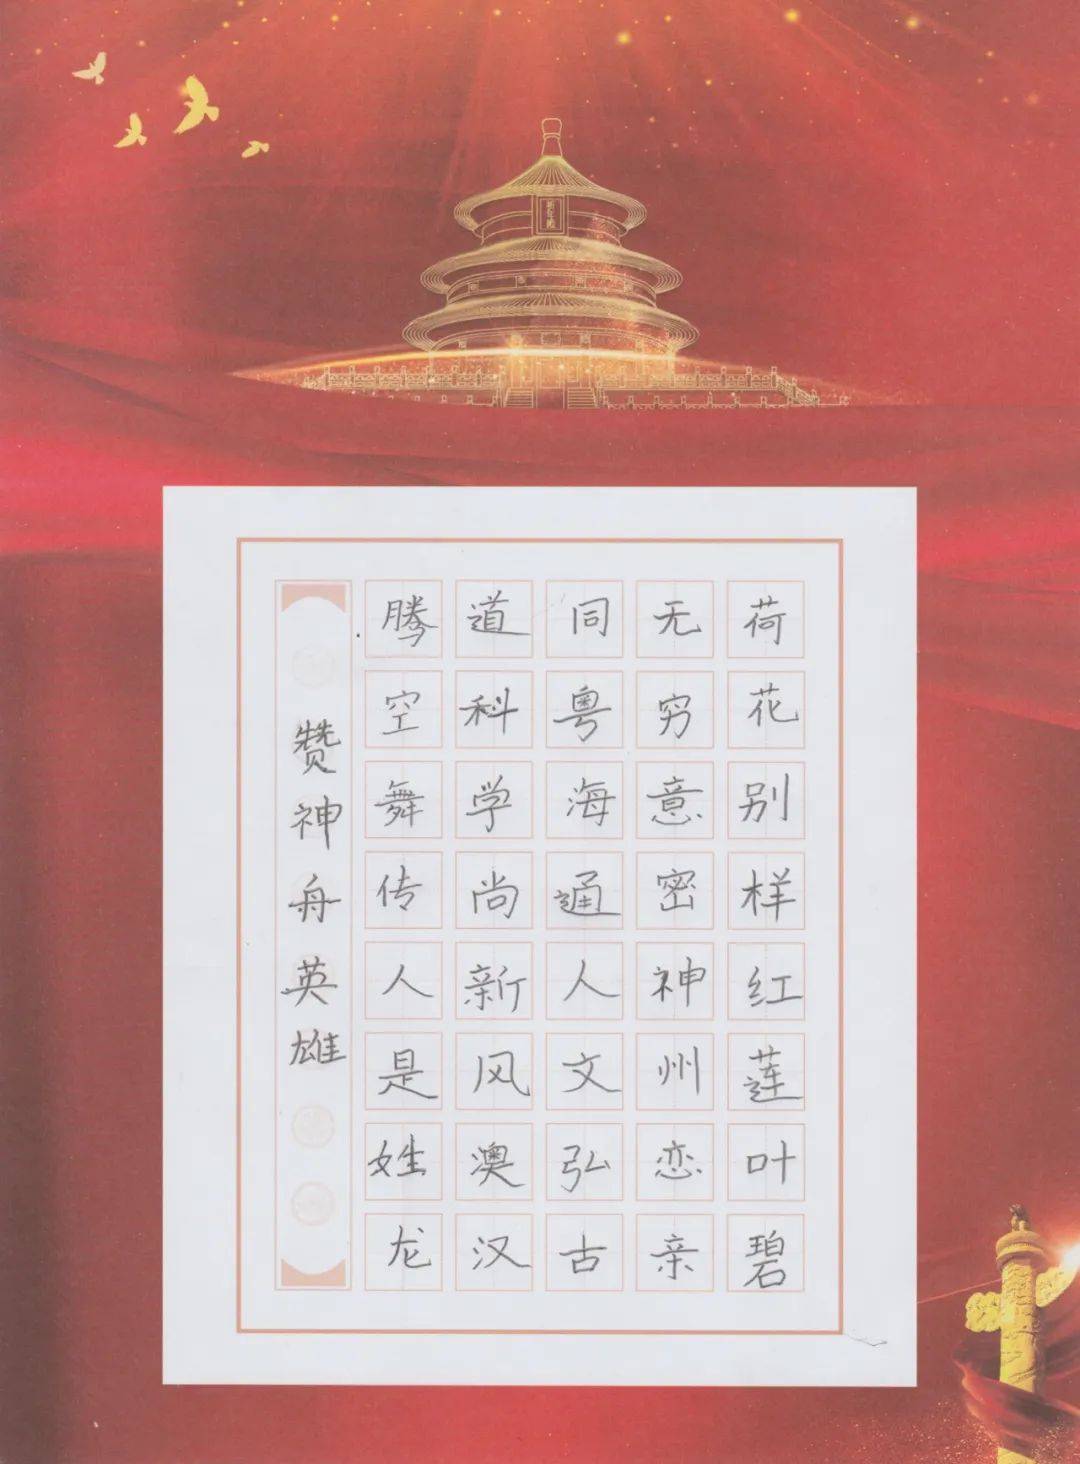 荷花别样红莲叶碧
无穷意密神州恋亲
同粤海通人文弘古
道科学尚新风澳汉
腾空舞传人是姓龙
赞神舟英雄